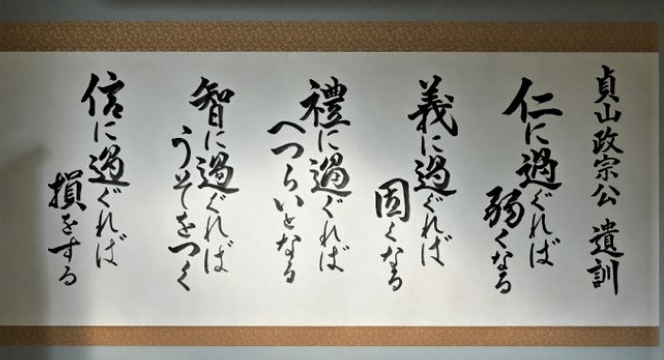 貞山政宗公 遺訓
仁に過ぐれば
弱くなる
義に過ぐれば
固くなる
禮に過ぐれば
へつらいとなる
智に過ぐれば
うそをつく
信に過ぐれば
損をする